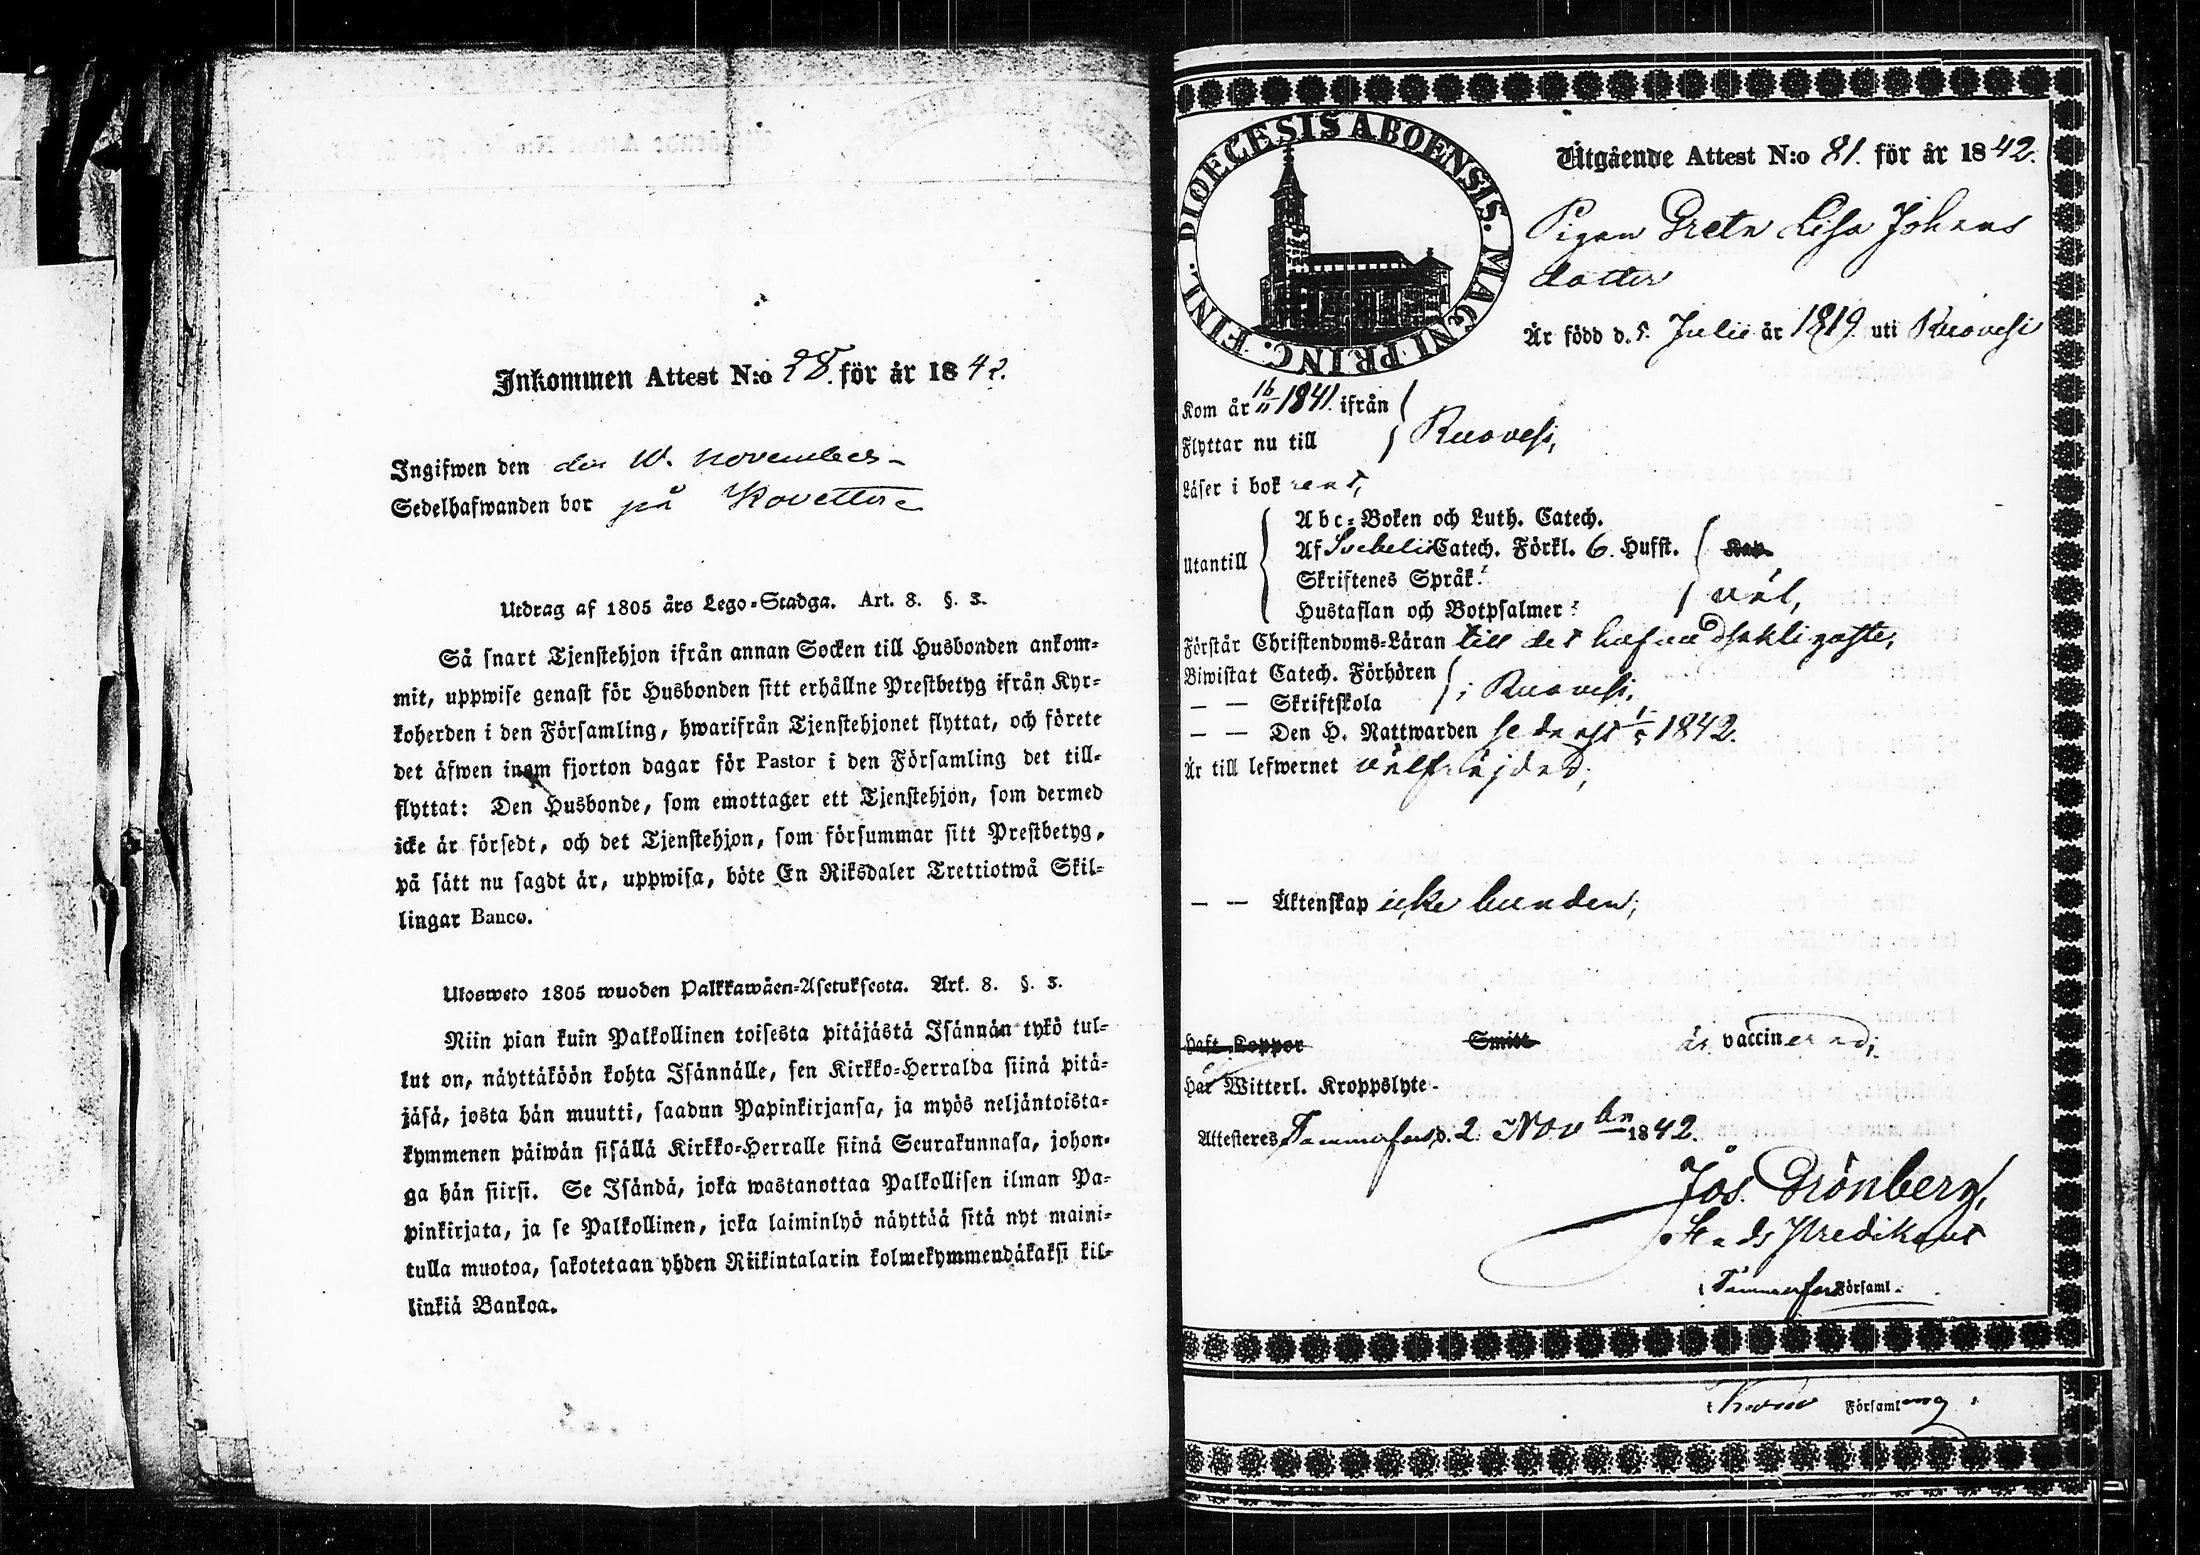 Inkommen Attest N:o 28. för år 1842.
Ingifwen den den 10. november
Sedelhafwanden bor på
Utdrag af 1805 års Lego-Stadga. Art. 8. §. 3.
Så snart Tjenstehjon ifrån annan Socken till Husbonden ankom-
mit, uppwise genast för Husbonden sitt erhållne Prestbetyg ifrån Kyr-
koherden i den Församling, hwarifrån Tjenstehjonet flyttat, och förete
det äfwen inom fjorton dagar för Pastor i den Församling det till-
flyttat: Den Husbonde, som emottager ett Tjenstehjon, som dermed
icke är försedt, och det Tjenstehjon, som försummar sitt Prestbetyg,
på sätt nu sagdt är, uppwisa, böte En Riksdaler Trettiotwå Skil-
lingar Banco.
Ulosweto 1805 wuoden Palkkawäen-Asetuksesta. Art. 8. §. 3.
Niin pian kuin Palkollinen toisesta pitäjästä Isännän tykö tul-
lut on, näyttäköön kohta Isännälle, sen Kirkko-Herralda siinä pitä-
jäsä, josta hän muutti, saadun Papinkirjansa, ja myös neljäntoista-
kymmenen päiwän sisällä Kirkko-Herralle siinä Seurakunnasa, johon-
ga hän siirsi. Se Isändä, joka wastanottaa Palkollisen ilman Pa-
pinkirjata, ja se Palkollinen, joka laiminlyö näyttää sitä nyt maini-
tulla muotoa, sakotetaan yhden Riikintalarin kolmekymmendäkaksi kil-
linkiä Bankoa.
DIOECESIS ABOENSIS. MAGNI PRINC. FINL.
Utgående Attest N:o 81. för år 1842.
Pigan Greta Lisa Johans
dotter
Är född d. 5. Julii år 1819. uti Ruovesi
Kom år 16/11 1841. ifrån
Flyttar nu till Ruovesi,
Läser i bok rent,
Utantill
Abc-Boken och Luth. Catech.
Af Svebelii Catech. Förkl. 6. Hufst. Kap.
Skriftenes Språk
Hustaflan och Botpsalmer väl,
Förstår Christendoms-Läran till det hufvudsakligaste,
Biwistat Catech. Förhören
— — Skriftskola i Ruovesi,
— — Den H. Nattwarden sednast 1842.
Är till lefwernet välfräjdad,
— — Äktenskap icke bunden,
Haft Koppor Smitt är vaccinerad,
Har Witterl. Kroppslyte
Attesteres Tammerfors d. 2. Novbr 1842.
Jos. Grönberg,
Stads Predikant
i Tammerfors Församl.
i Församling